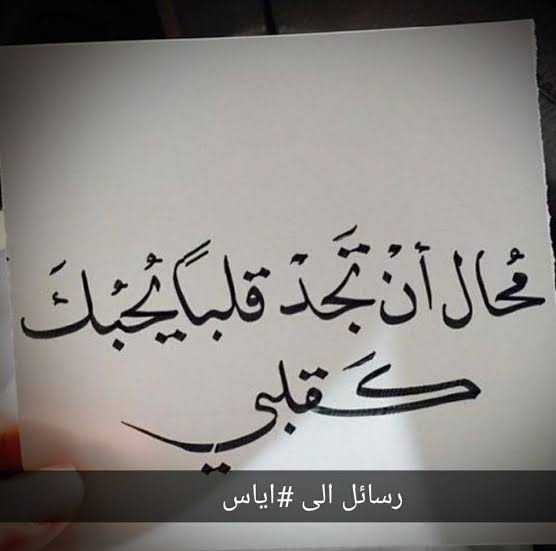 مُحال أنْ تَجدْ قلباً يُحبُكَ
كَقلبي
رسائل الى #اياس